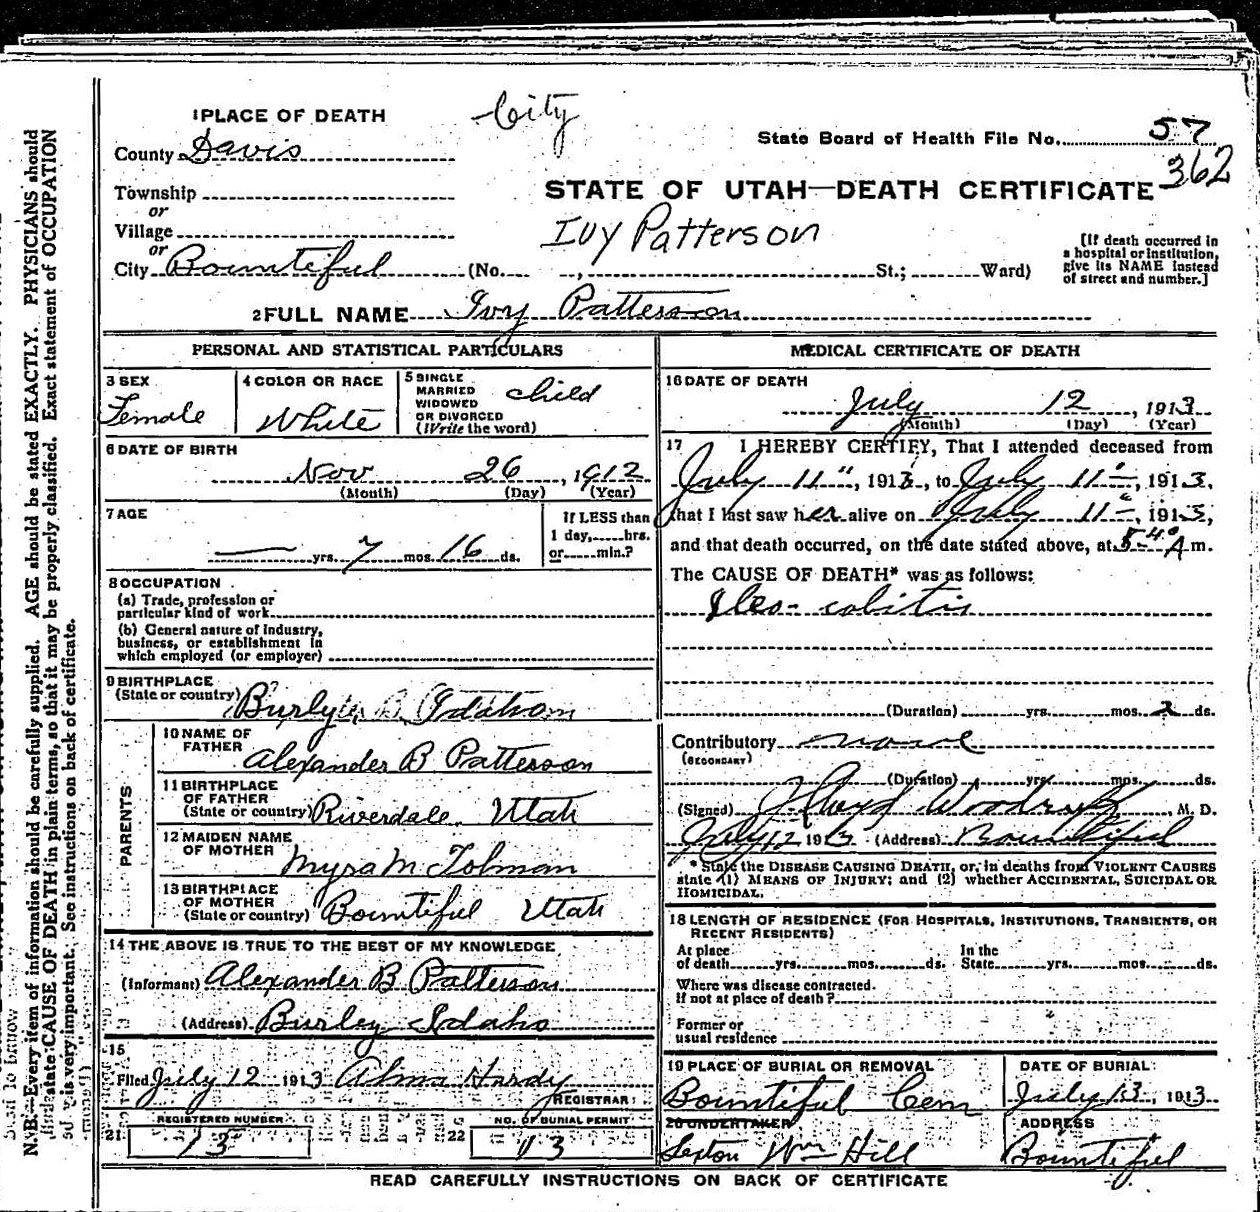 1 PLACE OF DEATH
City
State Board of Health File No. 57
362
County Davis
STATE OF UTAH—DEATH CERTIFICATE
Township
or
Village
Ivy Patterson
or
City Bountiful (No. , St.; Ward)
[If death occurred in a hospital or institution, give its NAME instead of street and number.]
2 FULL NAME Ivy Patterson
PERSONAL AND STATISTICAL PARTICULARS
3 SEX
Female
4 COLOR OR RACE
White
5 SINGLE
MARRIED
WIDOWED
OR DIVORCED
(Write the word)
child
6 DATE OF BIRTH
Nov 26, 1912
(Month) (Day) (Year)
7 AGE
— yrs. 7 mos. 16 ds.
If LESS than
1 day, hrs.
or min.?
8 OCCUPATION
(a) Trade, profession or
particular kind of work
(b) General nature of industry,
business, or establishment in
which employed (or employer)
9 BIRTHPLACE
(State or country)
10 NAME OF
FATHER
Alexander B Patterson
11 BIRTHPLACE
OF FATHER
(State or country) Riverdale Utah
12 MAIDEN NAME
OF MOTHER
Myra M Tolman
13 BIRTHPLACE
OF MOTHER
(State or country) Bountiful Utah
PARENTS
14 THE ABOVE IS TRUE TO THE BEST OF MY KNOWLEDGE
(Informant) Alexander B Patterson
(Address) Burley Idaho
15
Filed July 12 1913 Alma Hardy
REGISTRAR
REGISTERED NUMBER
21 13
NO. OF BURIAL PERMIT
22 13
MEDICAL CERTIFICATE OF DEATH
16 DATE OF DEATH
July 12, 1913
(Month) (Day) (Year)
17 I HEREBY CERTIFY, That I attended deceased from
July 11", 1913, to July 11, 1913,
that I last saw her alive on July 11, 1913,
and that death occurred, on the date stated above, at 5 40 A m.
The CAUSE OF DEATH* was as follows:
Ileo-colitis
(Duration) yrs. mos. 2 ds.
Contributory none
(SECONDARY)
(Duration) yrs. mos. ds.
(Signed) Woodruff M. D.
July 12 1913 (Address) Bountiful
*State the DISEASE CAUSING DEATH, or, in deaths from VIOLENT CAUSES
state (1) MEANS OF INJURY; and (2) whether ACCIDENTAL, SUICIDAL OR
HOMICIDAL.
18 LENGTH OF RESIDENCE (FOR HOSPITALS, INSTITUTIONS, TRANSIENTS, OR
RECENT RESIDENTS)
At place
of death yrs. mos. ds.
In the
State yrs. mos. ds.
Where was disease contracted.
If not at place of death?
Former or
usual residence
19 PLACE OF BURIAL OR REMOVAL
Bountiful Cem
DATE OF BURIAL:
July 13, 1913
20 UNDERTAKER
Sexton Wm Hill
ADDRESS
Bountiful
READ CAREFULLY INSTRUCTIONS ON BACK OF CERTIFICATE
N. B.—Every item of information should be carefully supplied. AGE should be stated EXACTLY. PHYSICIANS should
state CAUSE OF DEATH in plain terms, so that it may be properly classified. Exact statement of OCCUPATION
is very important. See instructions on back of certificate.